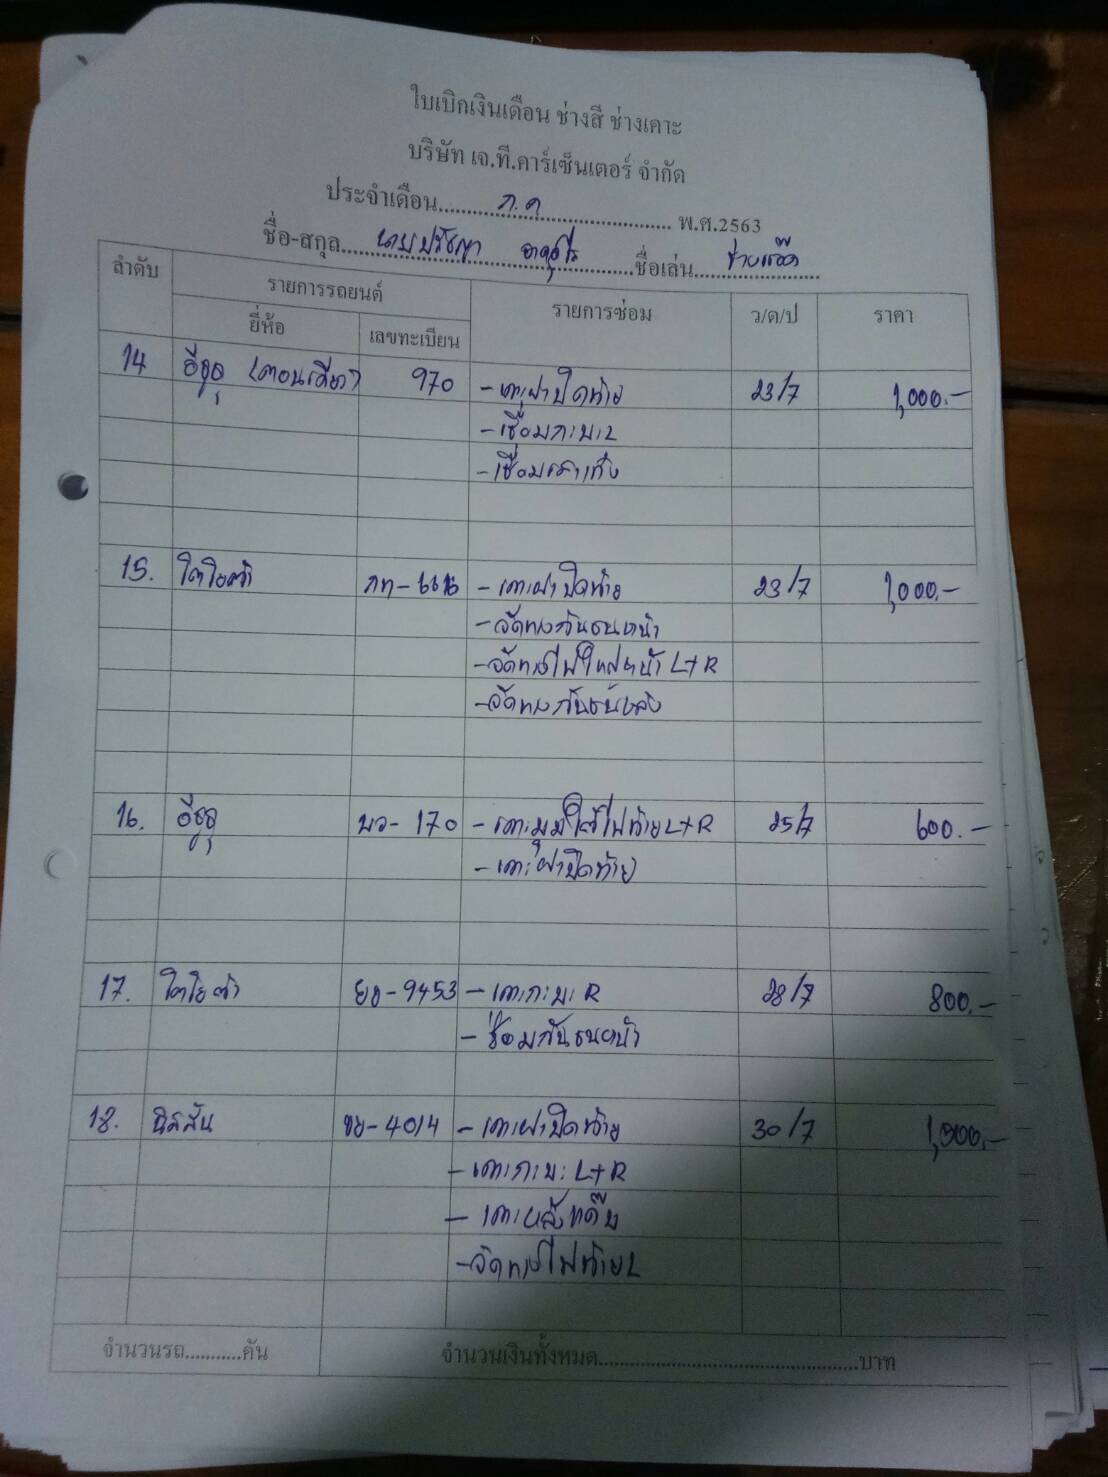 ใบเบิกเงินเดือน ช่างสี ช่างเคาะ
บริษัท เจ.ที.คาร์เซ็นเตอร์ จำกัด
ประจำเดือน ก.ค พ.ศ.2563
ชื่อ-สกุล นายปรัชญา ชื่อเล่น
ลำดับ รายการรถยนต์ รายการซ่อม ว/ด/ป ราคา
ยี่ห้อ เลขทะเบียน
14 อีซูซุ (ตอนเดียว) 970 - เคาะฝาปิดท้าย 23/7 1,000.-
- เชื่อมกะบะL
- เชื่อมเสาเก๋ง
15. โตโยต้า กท-6616 - เคาะฝาปิดท้าย 23/7 1,000.-
- จัดทรงกันชนหน้า
- จัดทรงไฟใหญ่หน้า L+R
- จัดทรงกันชนหลัง
16. อีซูซุ บว-170 - เคาะมุมใต้ไฟท้ายL+R 25/7 600.-
- เคาะฝาปิดท้าย
17. โตโยต้า ยง-9453 - เคาะกะบะ R 28/7 800.-
- ซ่อมกันชนหน้า
18. นิสสัน ขย-4014 - เคาะฝาปิดท้าย 30/7
- เคาะกะบะ L+R
- เคาะหลังแค๊บ
- จัดทรงไฟท้ายL
จำนวนรถ...........คัน จำนวนเงินทั้งหมด..........................................บาท